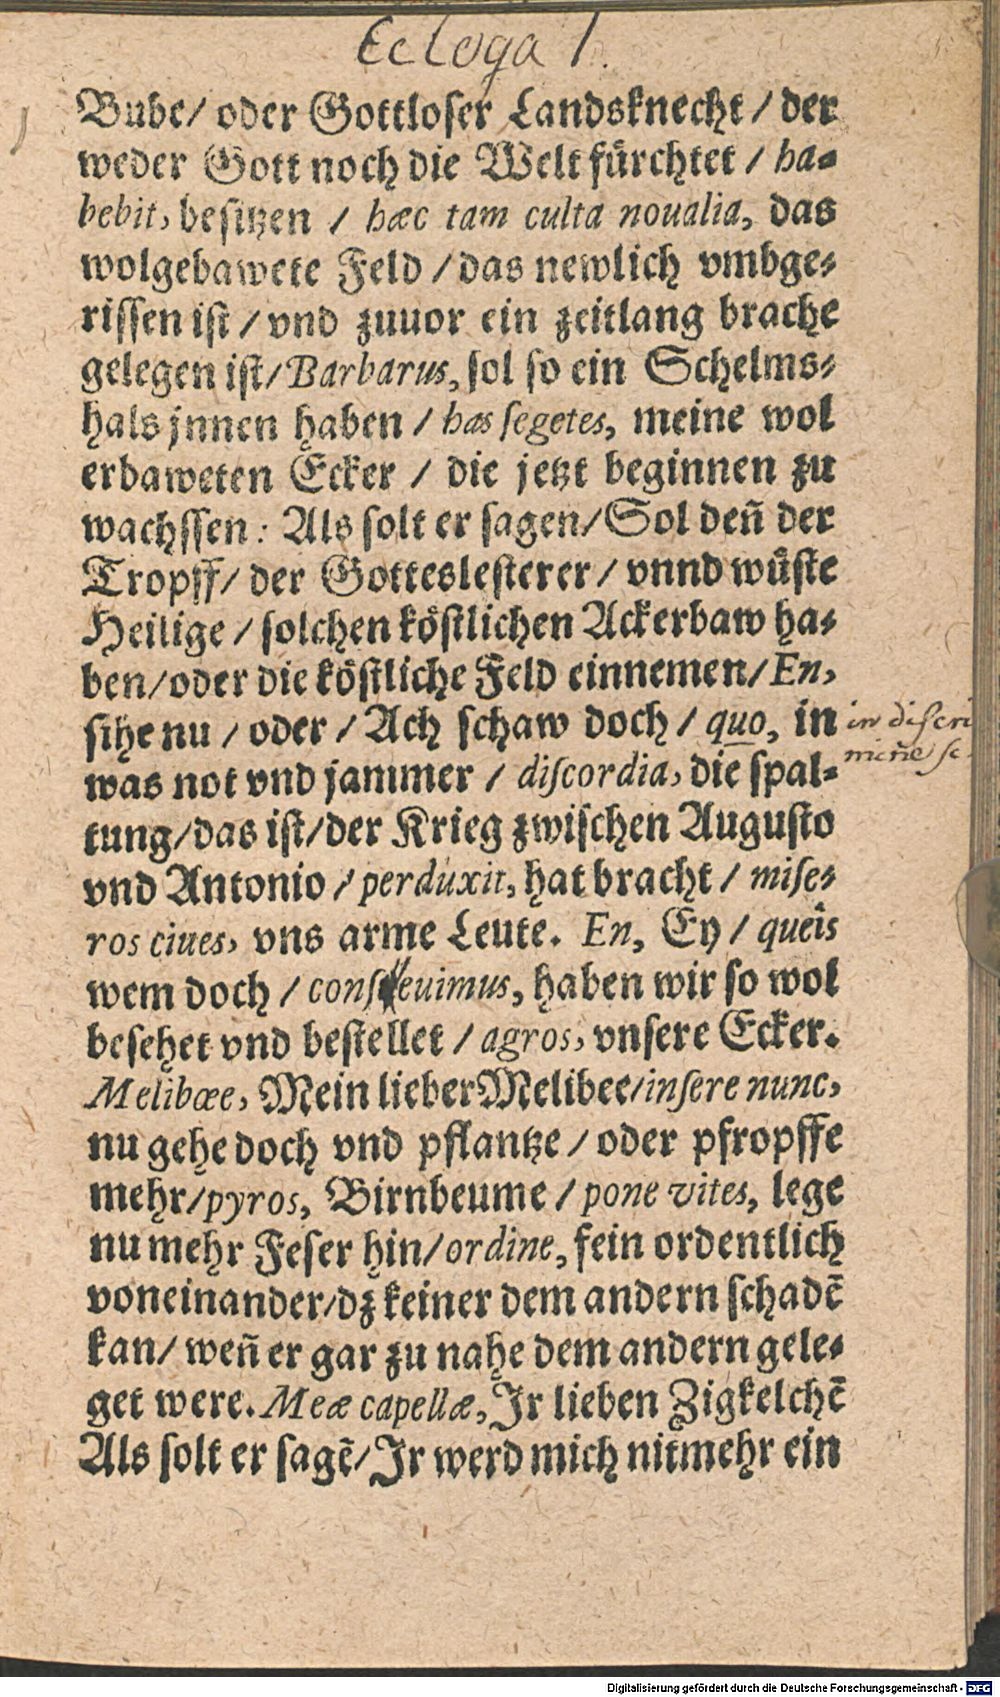 Ecloga 1.
Bube/ oder Gottloser Landsknecht / der
weder Gott noch die Welt fürchtet / ha-
bebit, besitzen / hæc tam culta noualia, das
wolgebawete Feld / das newlich vmbge-
rissen ist / vnd zuuor ein zeitlang brache
gelegen ist/ Barbarus, sol so ein Schelms-
hals jnnen haben / has segetes, meine wol
erbaweten Ecker / die jetzt beginnen zu
wachssen : Als solt er sagen/ Sol deñ der
Tropff/ der Gotteslesterer / vnnd wůste
Heilige / solchen köstlichen Ackerbaw ha-
ben/oder die köstliche Feld einnemen/ En,
sihe nu / oder / Ach schaw doch / quo, in
in discri
mine sc.
was not vnd jammer / discordia, die spal-
tung/das ist/der Krieg zwischen Augusto
vnd Antonio / perduxit, hat bracht / mise-
ros ciues, vns arme Leute. En, Ey / queîs
wem doch / conseuimus, haben wir so wol
besehet vnd bestellet / agros, vnsere Ecker.
Melibœe, Mein lieber Melibee/insere nunc,
nu gehe doch vnd pflantze / oder pfropffe
mehr/pyros, Birnbeume / pone vites, lege
nu mehr Feser hin/ordine, fein ordentlich
voneinander/dz keiner dem andern schadē
kan/ weñ er gar zu nahe dem andern gele-
get were. Meæ capellæ, Jr lieben Zigkelchē
Als solt er sagē/Jr werd mich nit mehr ein
Digitalisierung gefördert durch die Deutsche Forschungsgemeinschaft - DFG